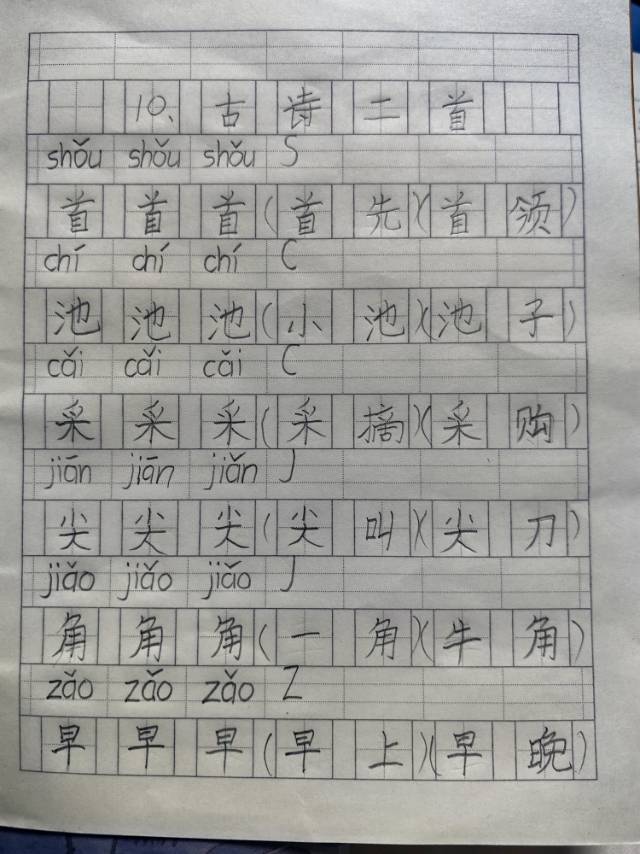 10、古诗二首
shǒu shǒu shǒu S
首首首(首先)(首领)
chí chí chí C
池池池(小池)(池子)
cǎi cǎi cǎi C
采采采(采摘)(采购)
jiān jiān jiān J
尖尖尖(尖叫)(尖刀)
jiǎo jiǎo jiǎo J
角角角(一角)(牛角)
zǎo zǎo zǎo Z
早早早(早上)(早晚)